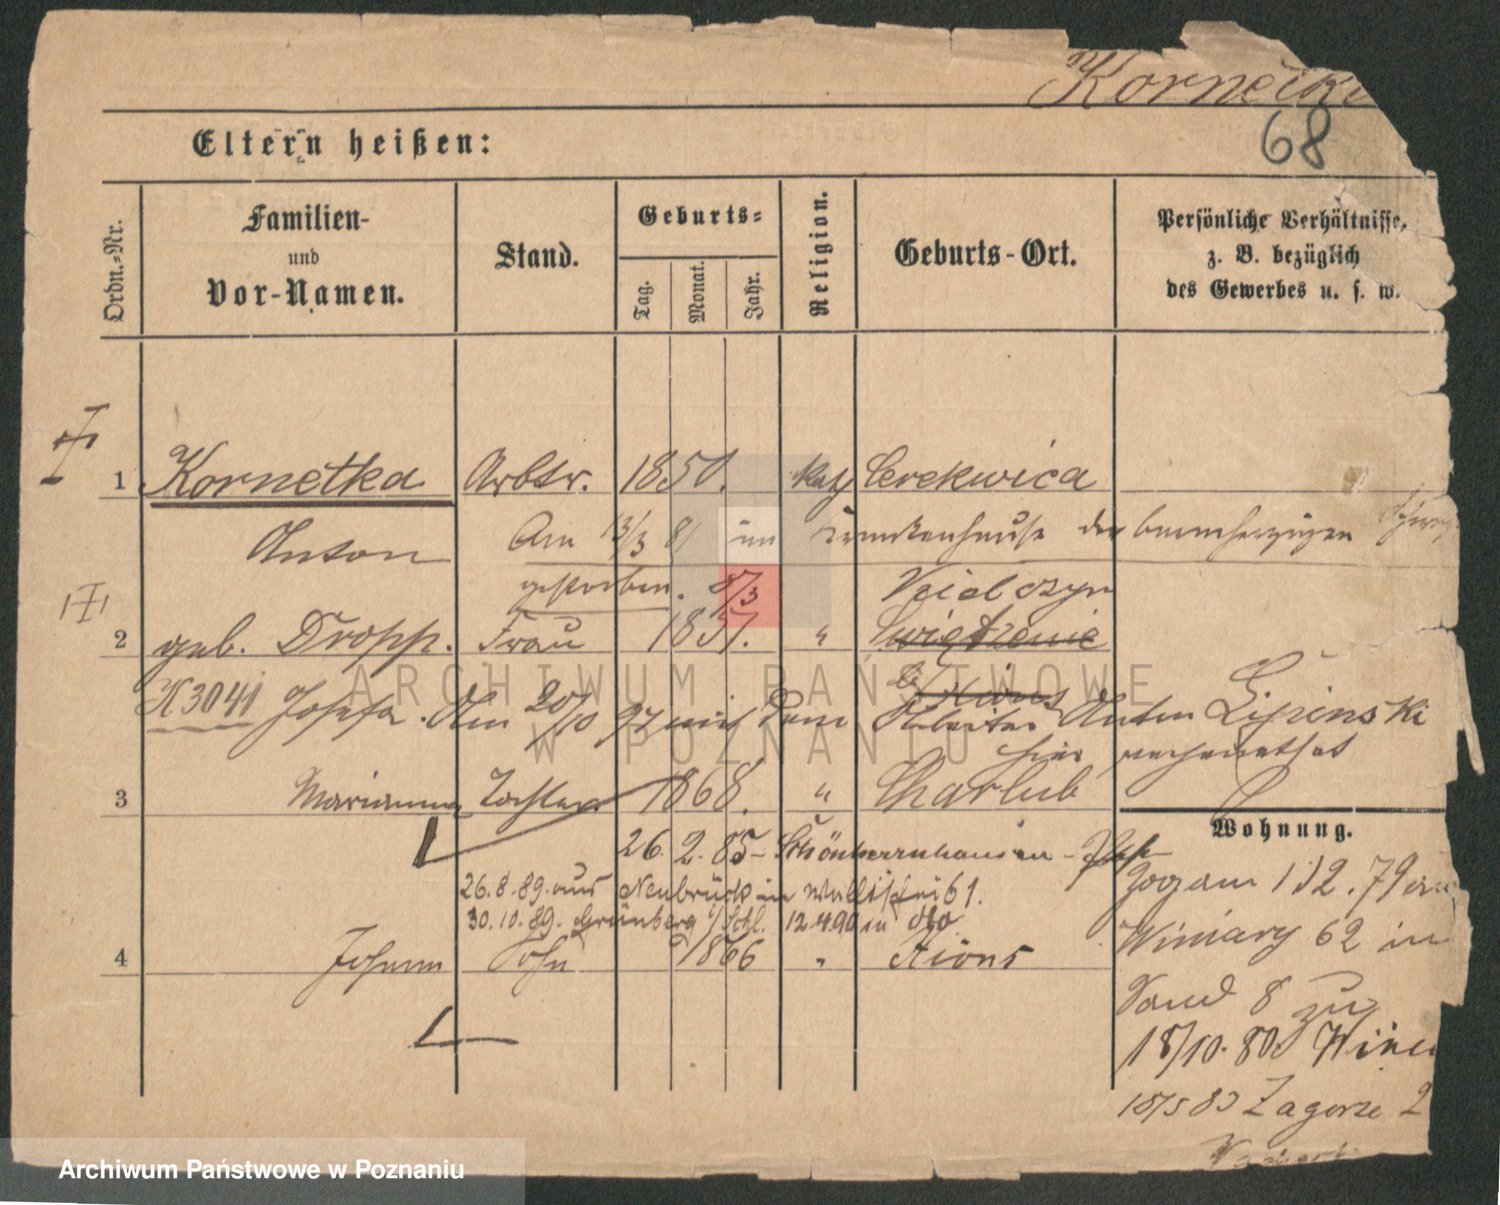 Kornetka
68
Eltern heißen:
Ordn.=Nr.
Familien-
und
Vor-Namen.
Stand.
Geburts=
Tag.
Monat.
Jahr.
Religion.
Geburts-Ort.
Persönliche Verhältnisse,
z. B. bezüglich
des Gewerbes u. s. w.
1 Kornetka Arbtr. 1850. kath Cerekwica
Anton Am 13/3 81 im Krankenhause der barmherzigen
gestorben. 8/3
2 geb. Dropp. Frau 1851. " Swiętzenie
K3041 Josefa. Am 20/10 97 mit dem Arbeiter Anton Lipinski
hier verheirathet
3 Marianna Tochter 1868. " Charlub
26. 2. 85 - Schönherrnhausen
26.8.89. aus Neubrück in Wallischei 61.
30.10.89. Grünberg i/Schl. 12.4.90 in
4 Johann Sohn 1866 " Xions
Wohnung.
Zog am 1/12. 79 aus
Winiary 62 in
Sand 8 zu
18/10. 80.
18/5 83 Zagorze 2
ARCHIWUM PAŃSTWOWE
W POZNANIU
Archiwum Państwowe w Poznaniu